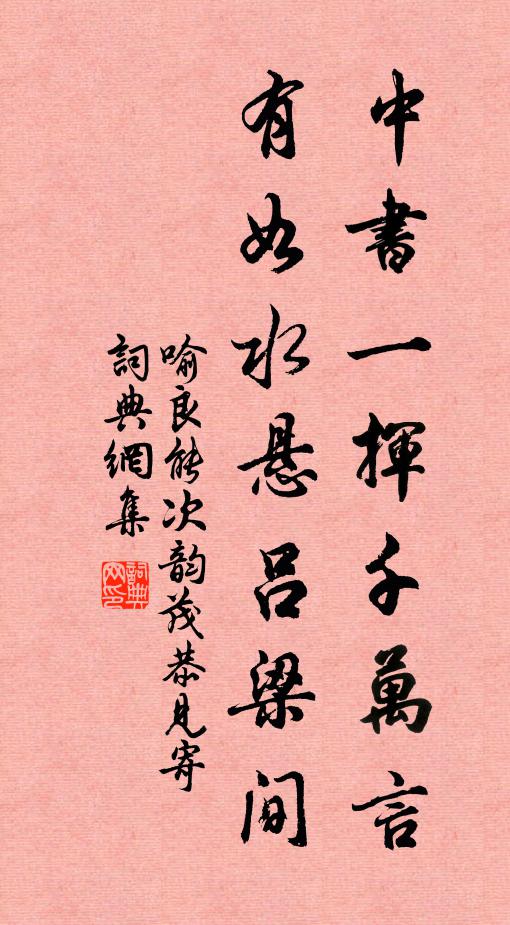 中書一揮千萬言
有如水懸呂梁間
喻良能次韵茂恭見寄
詞典網集
詞典網印